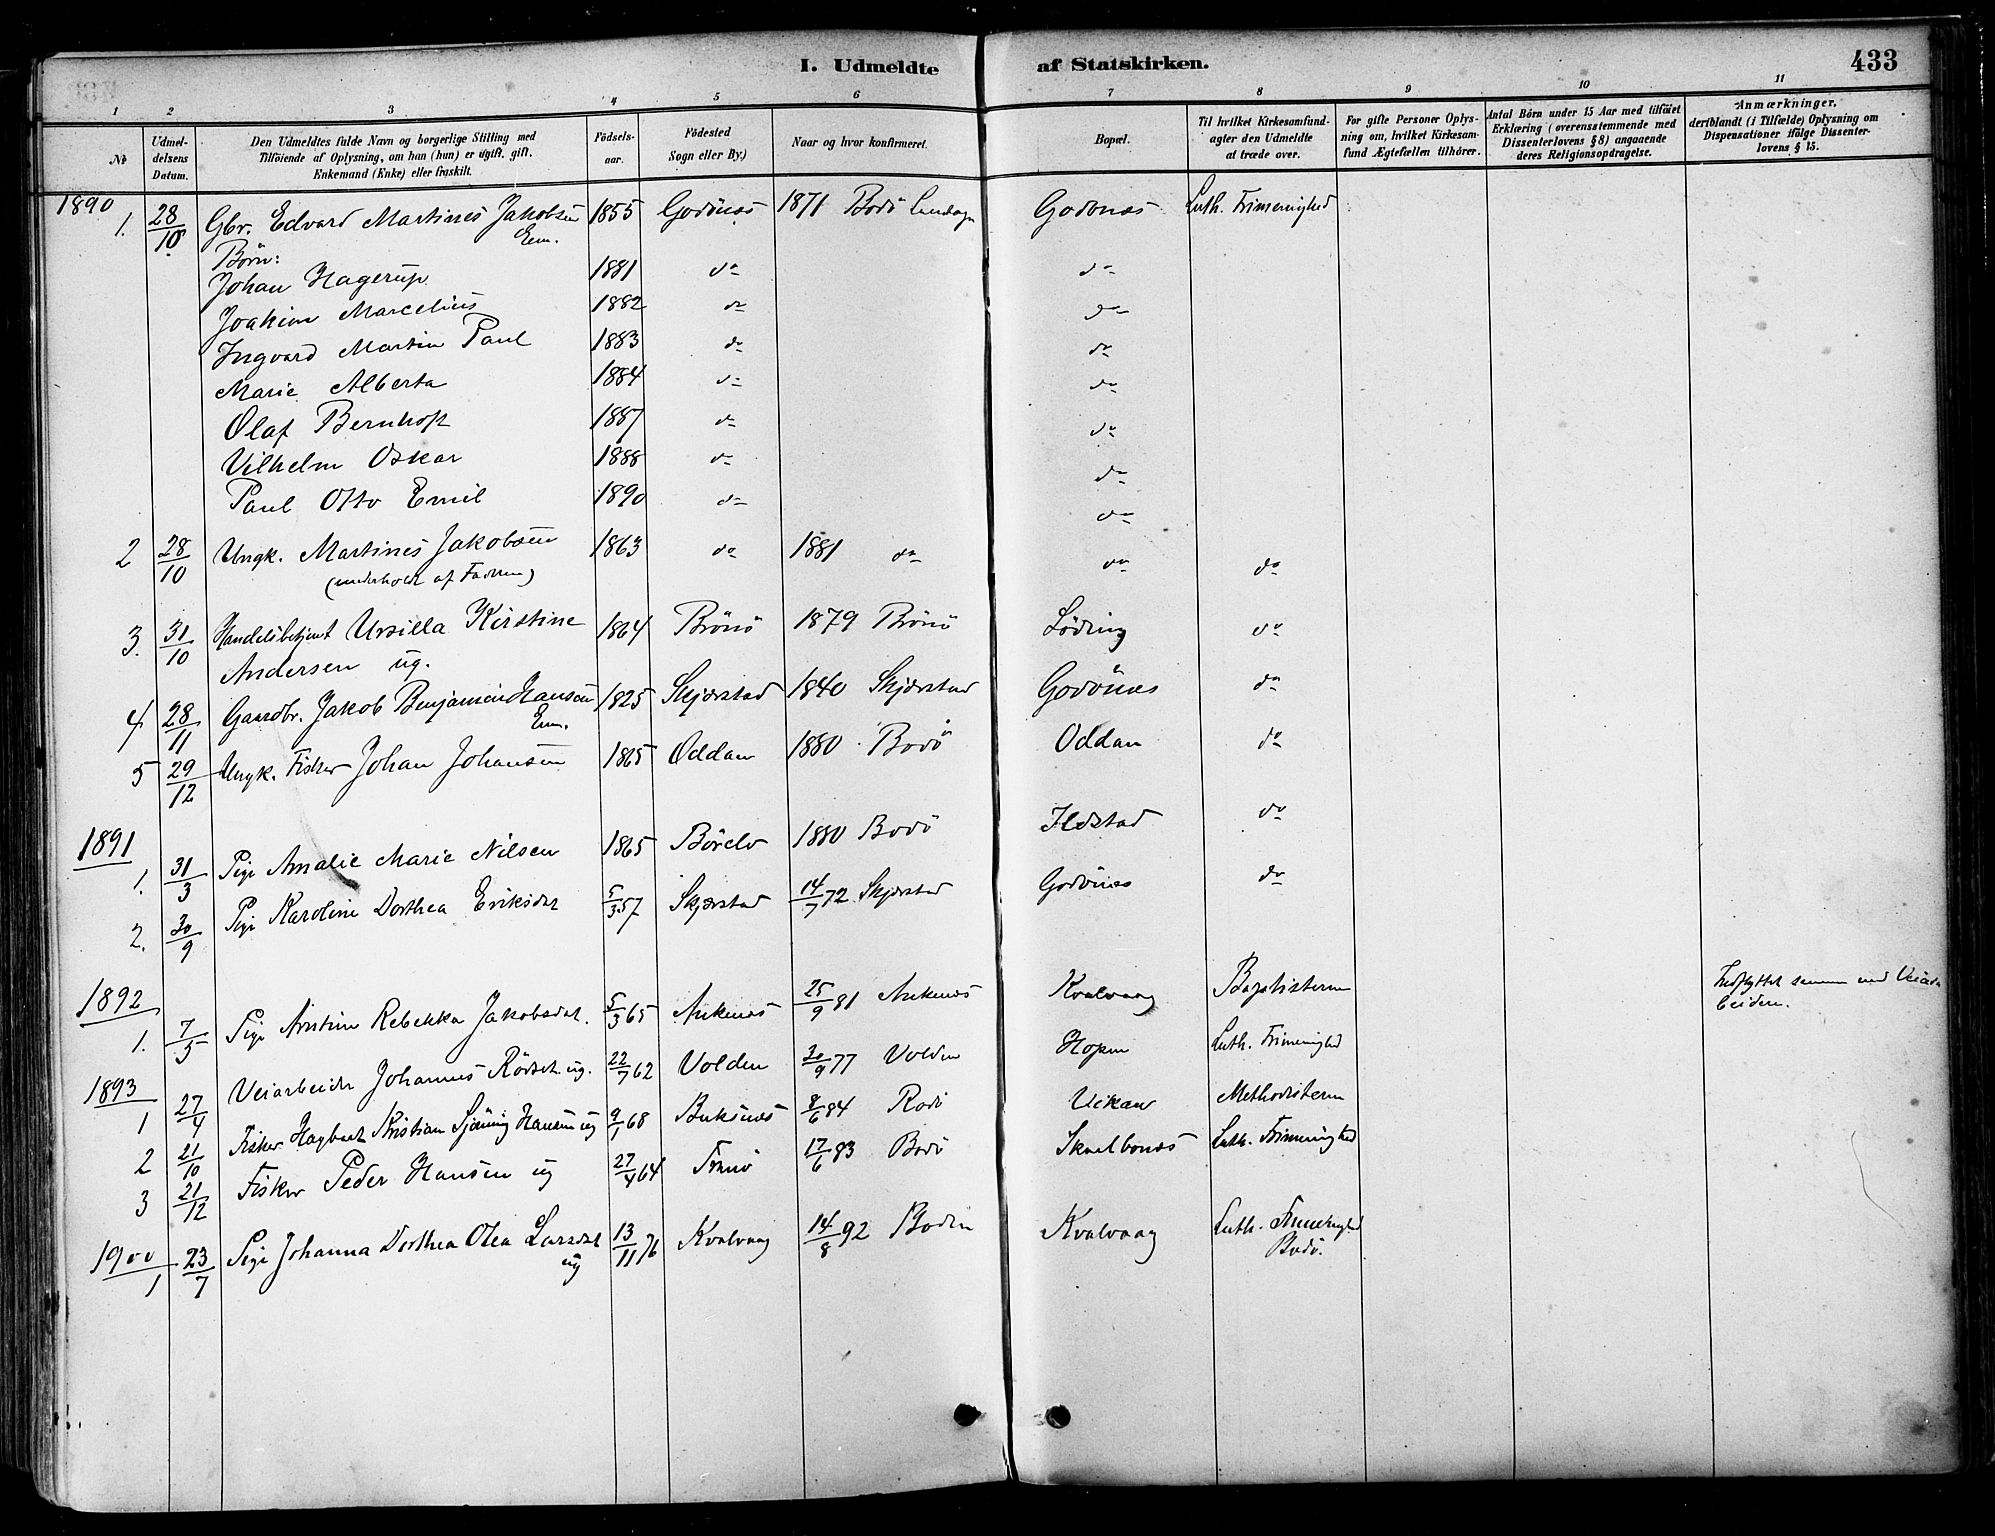 I. Udmeldte af Statskirken. 433
1 2 3 4 5 6 7 8 9 10 11
No Udmeldelsens Datum. Den Udmeldtes fulde Navn og borgerlige Stilling med Tilföiende af Oplysning, om han (hun) er ugift. gift. Enkemand (Enke) eller fraskilt. Födselsaar. Födested Sogn eller By.) Naar og hvor konfirmeret. Bopæl. Til hvilket Kirkesamfund agter den Udmeldte at træde over. For gifte Personer Oplysning om, hvilket Kirkesamfund Ægtefællen tilhörer. Antal Börn under 15 Aar med tilföiet Erklæring (overensstemmende med Dissenterlovens § 8) angaaende deres Religionsopdragelse. Anmærkninger, deriblandt (i Tilfælde) Oplysning om Dispensationer ifölge Dissenterlovens § 15.
1890
1. 28/10 Gbr. Edvard Martines Jakobsen Em. 1855 Godönes 1871 Bodö Godönes Luth. Frimenighed
Börn:
Johan Hagerup 1881 do do
Joakim Marcelius 1882 do do
Ingvard Martin Paul 1883 do do
Marie Alberta 1884 do do
Olaf Bernhoft 1887 do do
Vilhelm Oskar 1888 do do
Paul Otto Emil 1890 do do
2 28/10 Ungk. Martines Jakobsen 1863 do 1881 do do do
(underholdt af Faderen)
3. 31/10 Handelsbetjent Ursilla Kirstine 1864 Brönö 1879 Brönö Löding do
Andersen ug.
4 28/11 Gaardbr. Jakob Benjamin Hansen Em. 1825 Skjerstad 1840 Skjerstad Godönes do
5 29/12 Ungk. Fisker Johan Johansen 1865 Oddan 1880 Bodö Oddan do
1891
1. 31/3 Pige Amalie Marie Nilsen 1865 Börelv 1880 Bodö Ildstad do
2. 30/9 Pige Karoline Dorthea Eriksdat 5/3 57 Skjerstad 14/7 72 Skjerstad Godönes do
1892
1. 7/5 Pige Rebekka Jakobsdat. 5/3 65 Ankenes 25/9 81 Ankenes Kvalvaag Baptisterne
1893
1 27/4 Veiarbeider Johannes Rödset ug. 22/7 62 Volden 30/9 77 Volden Hopen Luth. Frimenighed
2 21/10 Fisker Hagbart Kristian Sjöning Hansen ug 9/1 68 Buksnes 8/6 84 Methodisterne
3 21/12 Fisker Peder Hansen ug 27/4 64 17/6 83 Bodö Skaelbones Luth. Frimenighed
1900
1 23/7 Pige Johanna Dorthea Olea Larsdat ug 13/11 76 Kvalvaag 14/8 92 Bodin Kvalvaag Luth. Frimenighed Bodö.